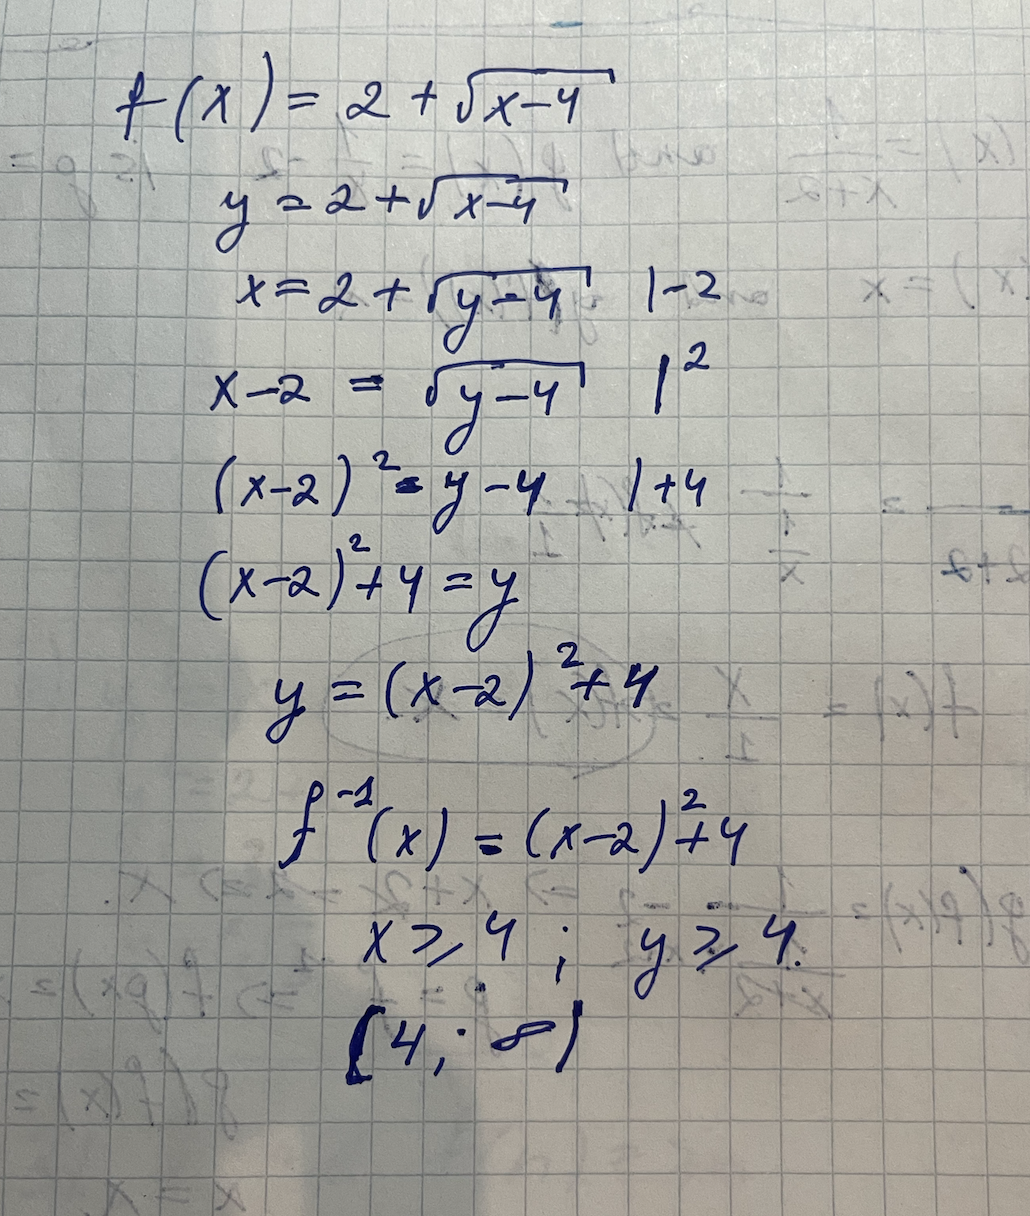 f(x) = 2 + √(x-4)
y = 2 + √(x-4)
x = 2 + √(y-4) |-2
x-2 = √(y-4) |²
(x-2)² = y-4 |+4
(x-2)² + 4 = y
y = (x-2)² + 4
f⁻¹(x) = (x-2)² + 4
x ⩾ 4 ; y ⩾ 4.
[4; ∞)